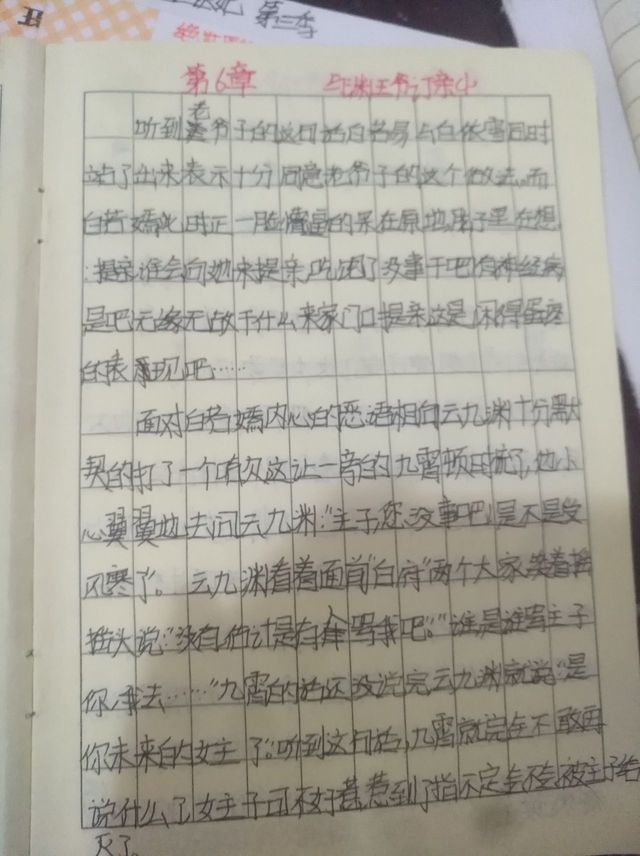 第三季
第6章 玐渊王爷订亲少
听到老爷子的这句话白若易与白依雪同时
站了出来表示十分同意老爷子的这个做法,而
白若嫣此时正一脸懵逼的呆在原地,脑子里在想
:提亲谁会向她来提亲,吃饱了没事干吧有神经病
是吧无缘无故干什么来家门口提亲这是闲得蛋疼
的表现吧……
面对白若嫣内心的恶语相向云九渊十分默
契的打了一个喷欠这让一旁的九霄顿时慌了,他小
心翼翼地去问云九渊:"主子,您没事吧!是不是受
风寒了"。云九渊看着面前"白府"两个大字,笑着摇
摇头说:"没有,估计是有人骂我吧。""谁是谁骂主子
你,我去……"九霄的话还没说完云九渊就说"是
你未来的女主子"。听到这句话,九霄就完全不敢再
说什么了,女主子可不好惹,惹到了指不定会不会被主子给
灭了。